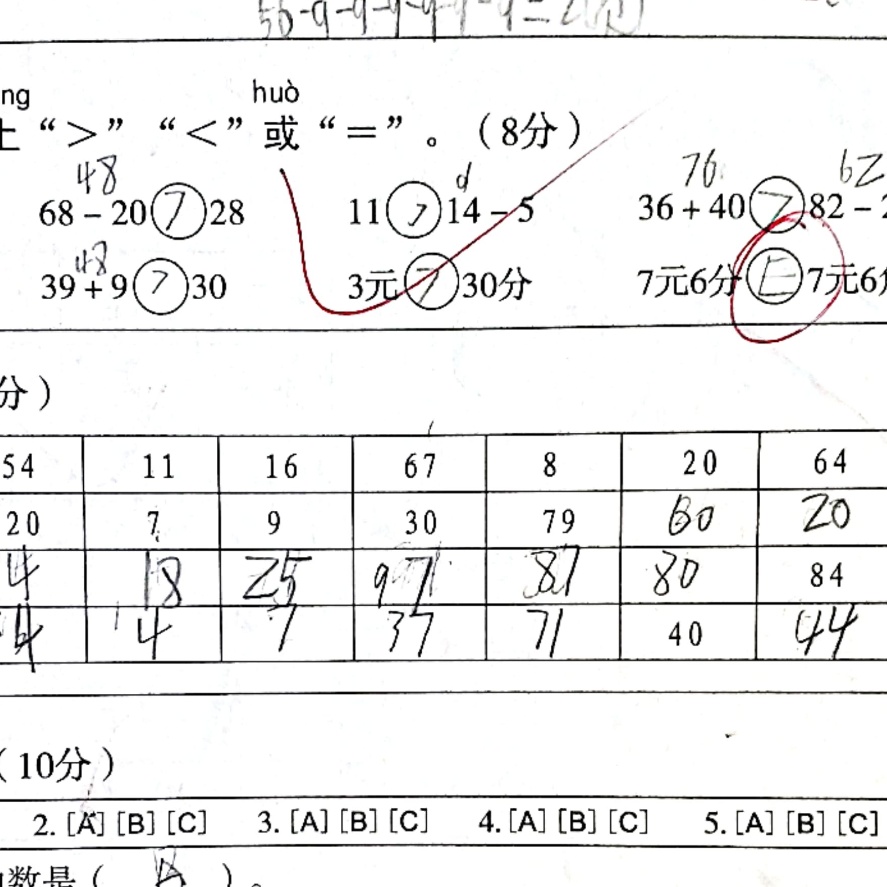 56-9-9-9-9-9-9=2
ng huò
上“>”“<”或“=”。（8分）
48 9 76 62
68－20 > 28 11 > 14－5 36＋40 > 82－2
48
39＋9 > 30 3元 > 30分 7元6分 = 7元6分
分）
54 11 16 67 8 20 64
20 7 9 30 79 60 20
4 18 25 97 87 80 84
4 4 7 37 71 40 44
（10分）
2. [A] [B] [C] 3. [A] [B] [C] 4. [A] [B] [C] 5. [A] [B] [C]
数是（ A ）。